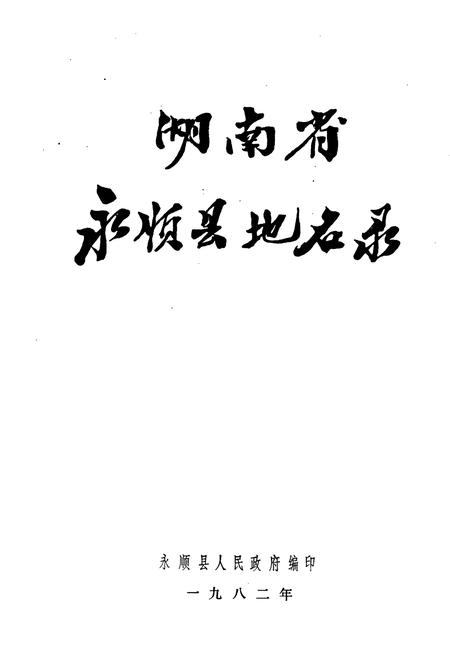 湖南省
永顺县地名录
永顺县人民政府编印
一九八二年